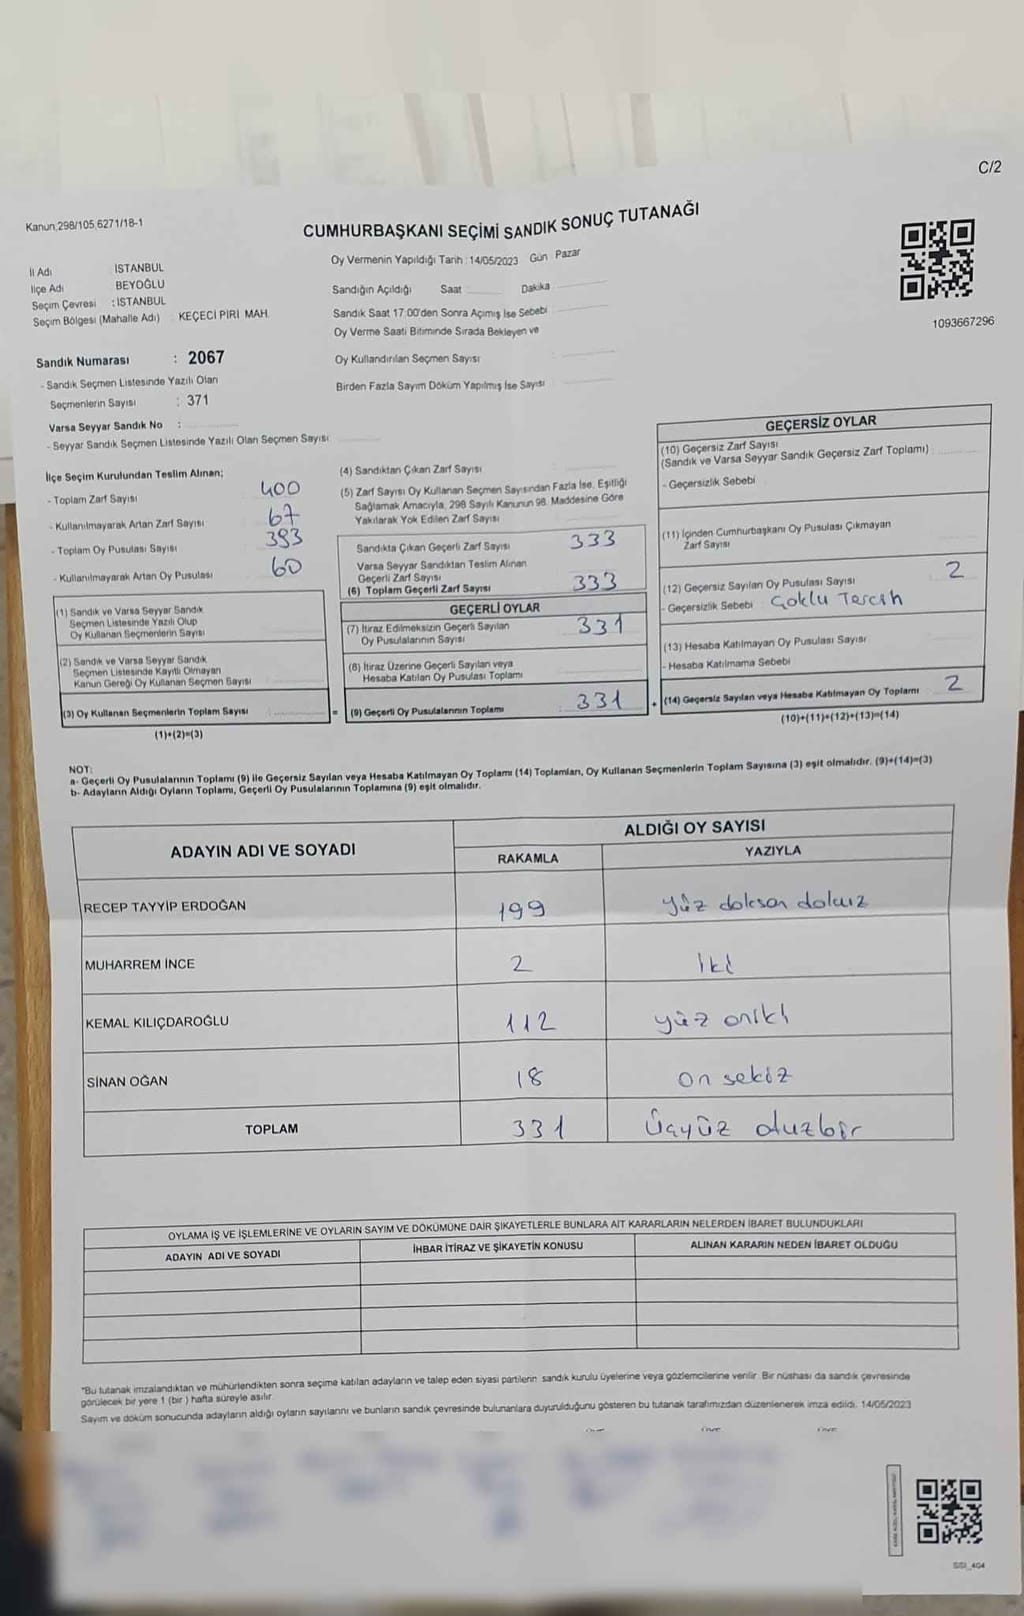 C/2
Kanun;298/105,6271/18-1
CUMHURBAŞKANI SEÇİMİ SANDIK SONUÇ TUTANAĞI
1093667296
İl Adı İSTANBUL
İlçe Adı BEYOĞLU
Seçim Çevresi : İSTANBUL
Seçim Bölgesi (Mahalle Adı) KEÇECİ PİRİ MAH.
Sandık Numarası : 2067
- Sandık Seçmen Listesinde Yazılı Olan
Seçmenlerin Sayısı : 371
Varsa Seyyar Sandık No :
- Seyyar Sandık Seçmen Listesinde Yazılı Olan Seçmen Sayısı
Oy Vermenin Yapıldığı Tarih : 14/05/2023 Gün Pazar
Sandığın Açıldığı Saat Dakika
Sandık Saat 17.00'den Sonra Açımış İse Sebebi
Oy Verme Saati Bitiminde Sırada Bekleyen ve
Oy Kullandırılan Seçmen Sayısı :
Birden Fazla Sayım Döküm Yapılmış İse Sayısı
İlçe Seçim Kurulundan Teslim Alınan;
- Toplam Zarf Sayısı 400
- Kullanılmayarak Artan Zarf Sayısı 67
- Toplam Oy Pusulası Sayısı 393
- Kullanılmayarak Artan Oy Pusulası 60
(1) Sandık ve Varsa Seyyar Sandık
Seçmen Listesinde Yazılı Olup
Oy Kullanan Seçmenlerin Sayısı
(2) Sandık ve Varsa Seyyar Sandık
Seçmen Listesinde Kayıtlı Olmayan
Kanun Gereği Oy Kullanan Seçmen Sayısı
(3) Oy Kullanan Seçmenlerin Toplam Sayısı :
(1)+(2)=(3)
(4) Sandıktan Çıkan Zarf Sayısı
(5) Zarf Sayısı Oy Kullanan Seçmen Sayısından Fazla İse, Eşitliği
Sağlamak Amacıyla, 298 Sayılı Kanunun 98. Maddesine Göre
Yakılarak Yok Edilen Zarf Sayısı
Sandıkta Çıkan Geçerli Zarf Sayısı 333
Varsa Seyyar Sandıktan Teslim Alınan
Geçerli Zarf Sayısı
(6) Toplam Geçerli Zarf Sayısı 333
GEÇERLİ OYLAR
(7) İtiraz Edilmeksizin Geçerli Sayılan
Oy Pusulalarının Sayısı 331
(8) İtiraz Üzerine Geçerli Sayılan veya
Hesaba Katılan Oy Pusulası Toplamı
= (9) Geçerli Oy Pusulalarının Toplamı : 331
GEÇERSİZ OYLAR
(10) Geçersiz Zarf Sayısı
(Sandık ve Varsa Seyyar Sandık Geçersiz Zarf Toplamı)
- Geçersizlik Sebebi
(11) İçinden Cumhurbaşkanı Oy Pusulası Çıkmayan
Zarf Sayısı
(12) Geçersiz Sayılan Oy Pusulası Sayısı 2
- Geçersizlik Sebebi Çoklu Tercih
(13) Hesaba Katılmayan Oy Pusulası Sayısı
- Hesaba Katılmama Sebebi
+ (14) Geçersiz Sayılan veya Hesaba Katılmayan Oy Toplamı 2
(10)+(11)+(12)+(13)=(14)
NOT:
a- Geçerli Oy Pusulalarının Toplamı (9) ile Geçersiz Sayılan veya Hesaba Katılmayan Oy Toplamı (14) Toplamları, Oy Kullanan Seçmenlerin Toplam Sayısına (3) eşit olmalıdır. (9)+(14)=(3)
b- Adayların Aldığı Oyların Toplamı, Geçerli Oy Pusulalarının Toplamına (9) eşit olmalıdır.
ADAYIN ADI VE SOYADI ALDIĞI OY SAYISI
RAKAMLA YAZIYLA
RECEP TAYYİP ERDOĞAN 199 yüz doksan dokuz
MUHARREM İNCE 2 iki
KEMAL KILIÇDAROĞLU 112 yüz oniki
SİNAN OĞAN 18 on sekiz
TOPLAM 331 Üçyüz otuzbir
OYLAMA İŞ VE İŞLEMLERİNE VE OYLARIN SAYIM VE DÖKÜMÜNE DAİR ŞİKAYETLERLE BUNLARA AİT KARARLARIN NELERDEN İBARET BULUNDUKLARI
ADAYIN ADI VE SOYADI İHBAR İTİRAZ VE ŞİKAYETİN KONUSU ALINAN KARARIN NEDEN İBARET OLDUĞU
"Bu tutanak imzalandıktan ve mühürlendikten sonra seçime katılan adayların ve talep eden siyasi partilerin sandık kurulu üyelerine veya gözlemcilerine verilir. Bir nüshası da sandık çevresinde
görülecek bir yere 1 (bir) hafta süreyle asılır.
Sayım ve döküm sonucunda adayların aldığı oyların sayılarını ve bunların sandık çevresinde bulunanlara duyurulduğunu gösteren bu tutanak tarafımızdan düzenlenerek imza edildi. 14/05/2023
SSI_404